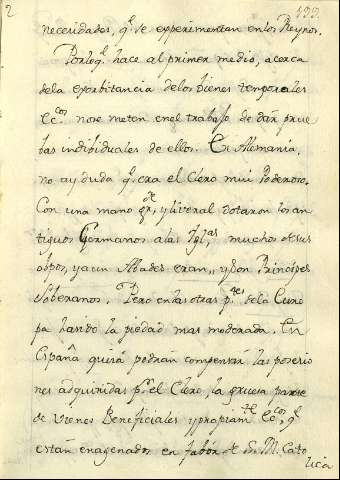 2
199.
necesidades, q.e se experimentan en los Reynos.
Por lo q.e hace al primer medio, acerca
dela exorbitancia delos bienes temporales
Ecc.cos no se meten enel trabajo de dar prue
bas individuales de ellos. En Alemania
no ay duda q.e era el Clero mui Poderoso.
Con una mano gr.de, y liveral dotaron los an
tiguos Germanos a las Ygl.as, muchos de sus
obpos, y aun Abades eran, y son Principes
Soberanos. Pero en las otras p.tes dela Euro
pa ha sido la piedad mas moderada. En
España quizà podràn compensar las posesio
nes adquiridas p.r el Clero, la gruesa parte
de vienes Beneficiales y propiam.te Ecc.cos, q.e
estàn enagenados en fabòr de S. M. Cato
lica